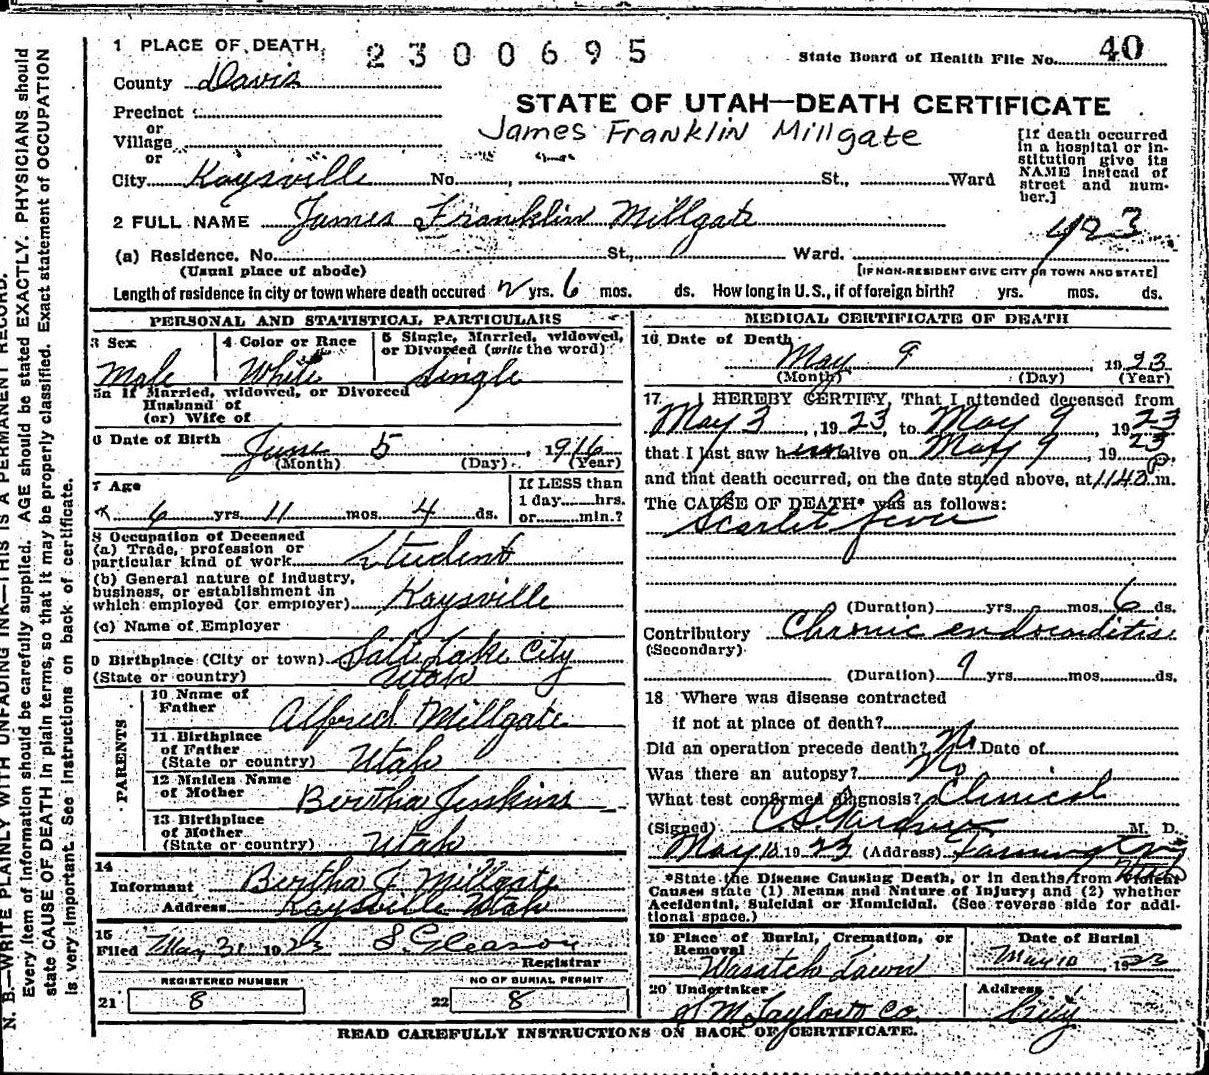 1 PLACE OF DEATH, 2300695 State Board of Health File No. 40
County Davis
Precinct
or
Village
or
City Kaysville No. , St., Ward
STATE OF UTAH—DEATH CERTIFICATE
James Franklin Millgate
[If death occurred
in a hospital or in-
stitution give its
NAME instead of
street and num-
ber.]
2 FULL NAME James Franklin Millgate
423
(a) Residence. No. St., Ward.
(Usual place of abode) [IF NON-RESIDENT GIVE CITY OR TOWN AND STATE]
Length of residence in city or town where death occured yrs. 6 mos. ds. How long in U. S., if of foreign birth? yrs. mos. ds.
PERSONAL AND STATISTICAL PARTICULARS
3 Sex
Male
4 Color or Race
White
5 Single, Married, widowed,
or Divorced (write the word)
Single
5a If Married, widowed, or Divorced
Husband of
(or) Wife of
6 Date of Birth
June 5, 1916
(Month) (Day) (Year)
7 Age
6 yrs. 11 mos. 4 ds.
If LESS than
1 day hrs.
or min.?
8 Occupation of Deceased
(a) Trade, profession or
particular kind of work Student
(b) General nature of industry,
business, or establishment in
which employed (or employer) Kaysville
(c) Name of Employer
9 Birthplace (City or town) Salt Lake City
(State or country) Utah
PARENTS
10 Name of
Father Alfred Millgate
11 Birthplace
of Father
(State or country) Utah
12 Maiden Name
of Mother Bertha Jenkins
13 Birthplace
of Mother
(State or country) Utah
14
Informant Bertha J. Millgate
Address Kaysville Utah
15
Filed May 31 1923 S. Gleason
Registrar
REGISTERED NUMBER
21 8
NO OF BURIAL PERMIT
22 8
MEDICAL CERTIFICATE OF DEATH
16 Date of Death
May 9, 1923
(Month) (Day) (Year)
17. I HEREBY CERTIFY, That I attended deceased from
May 3, 1923, to May 9, 1923
that I last saw him alive on May 9, 1923,
and that death occurred, on the date stated above, at 1143 P m.
The CAUSE OF DEATH* was as follows:
Scarlet fever
(Duration) yrs. mos. 6 ds.
Contributory Chronic endocarditis
(Secondary)
(Duration) 9 yrs. mos. ds.
18 Where was disease contracted
if not at place of death?
Did an operation precede death? No. Date of
Was there an autopsy? No
What test confirmed diagnosis? Clinical
(Signed) C. S. Gardner M. D.
May 10 1923 (Address) Farmington Utah
*State the Disease Causing Death, or in deaths from Violent
Causes state (1) Means and Nature of Injury; and (2) whether
Accidental, Suicidal or Homicidal. (See reverse side for addi-
tional space.)
19 Place of Burial, Cremation, or
Removal
Wasatch Lawn
Date of Burial
May 10, 1923
20 Undertaker
S. M. Taylor & Co.
Address
City
READ CAREFULLY INSTRUCTIONS ON BACK OF CERTIFICATE.
N. B.—WRITE PLAINLY WITH UNFADING INK—THIS IS A PERMANENT RECORD.
Every item of information should be carefully supplied. AGE should be stated EXACTLY. PHYSICIANS should
state CAUSE OF DEATH in plain terms, so that it may be properly classified. Exact statement of OCCUPATION
is very important. See instructions on back of certificate.